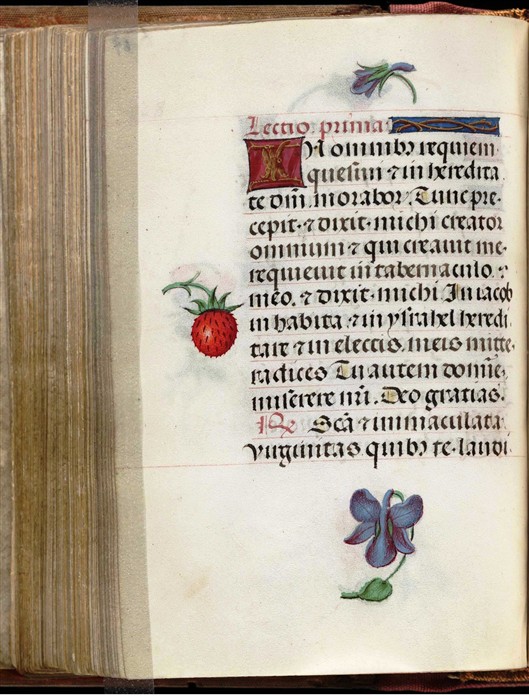 Lectio prima
IN omnibꝫ requiem
quesiui ⁊ in heredita
te dm̄. morabor. Tunc pre-
cepit. ⁊ dixit. michi creator
omnium ⁊ qui creauit me.
requieuit in tabernaculo.
meo. ⁊ dixit. michi. In iacob
in habita. ⁊ in ysrahel heredi
tare ⁊ in electis. meis mitte.
radices Tu autem domĩe.
miserere nr̄i. Deo gratias.
℟ Sc̄a ⁊ immaculata
virginitas quibꝫ te. laudi